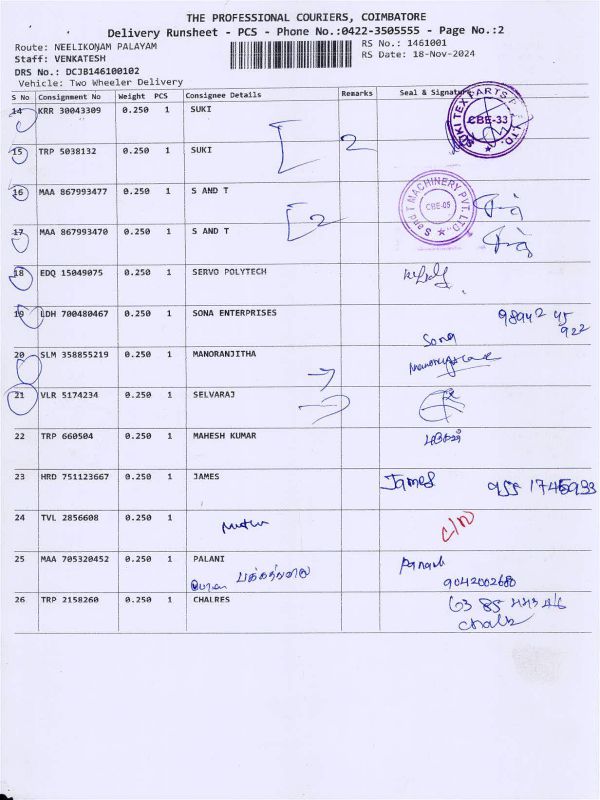 THE PROFESSIONAL COURIERS, COIMBATORE
Delivery Runsheet - PCS - Phone No.:0422-3505555 - Page No.:2
Route: NEELIKONAM PALAYAM
RS No.: 1461001
Staff: VENKATESH
RS Date: 18-Nov-2024
DRS No.: DCJB146100102
Vehicle: Two Wheeler Delivery
S No Consignment No Weight PCS Consignee Details Remarks Seal & Signature
14 KRR 30043309 0.250 1 SUKI
SUKI TEX PARTS P. LTD. CBE-33
15 TRP 5038132 0.250 1 SUKI 2
16 MAA 867993477 0.250 1 S AND T
S and T MACHINERY PVT. LTD., CBE-05
2
17 MAA 867993470 0.250 1 S AND T
18 EDQ 15049075 0.250 1 SERVO POLYTECH
19 LDH 700480467 0.250 1 SONA ENTERPRISES 98942 45
922
Sona
20 SLM 358855219 0.250 1 MANORANJITHA
21 VLR 5174234 0.250 1 SELVARAJ
22 TRP 660504 0.250 1 MAHESH KUMAR
23 HRD 751123667 0.250 1 JAMES James
24 TVL 2856608 0.250 1
25 MAA 705320452 0.250 1 PALANI
9042002680
26 TRP 2158260 0.250 1 CHALRES